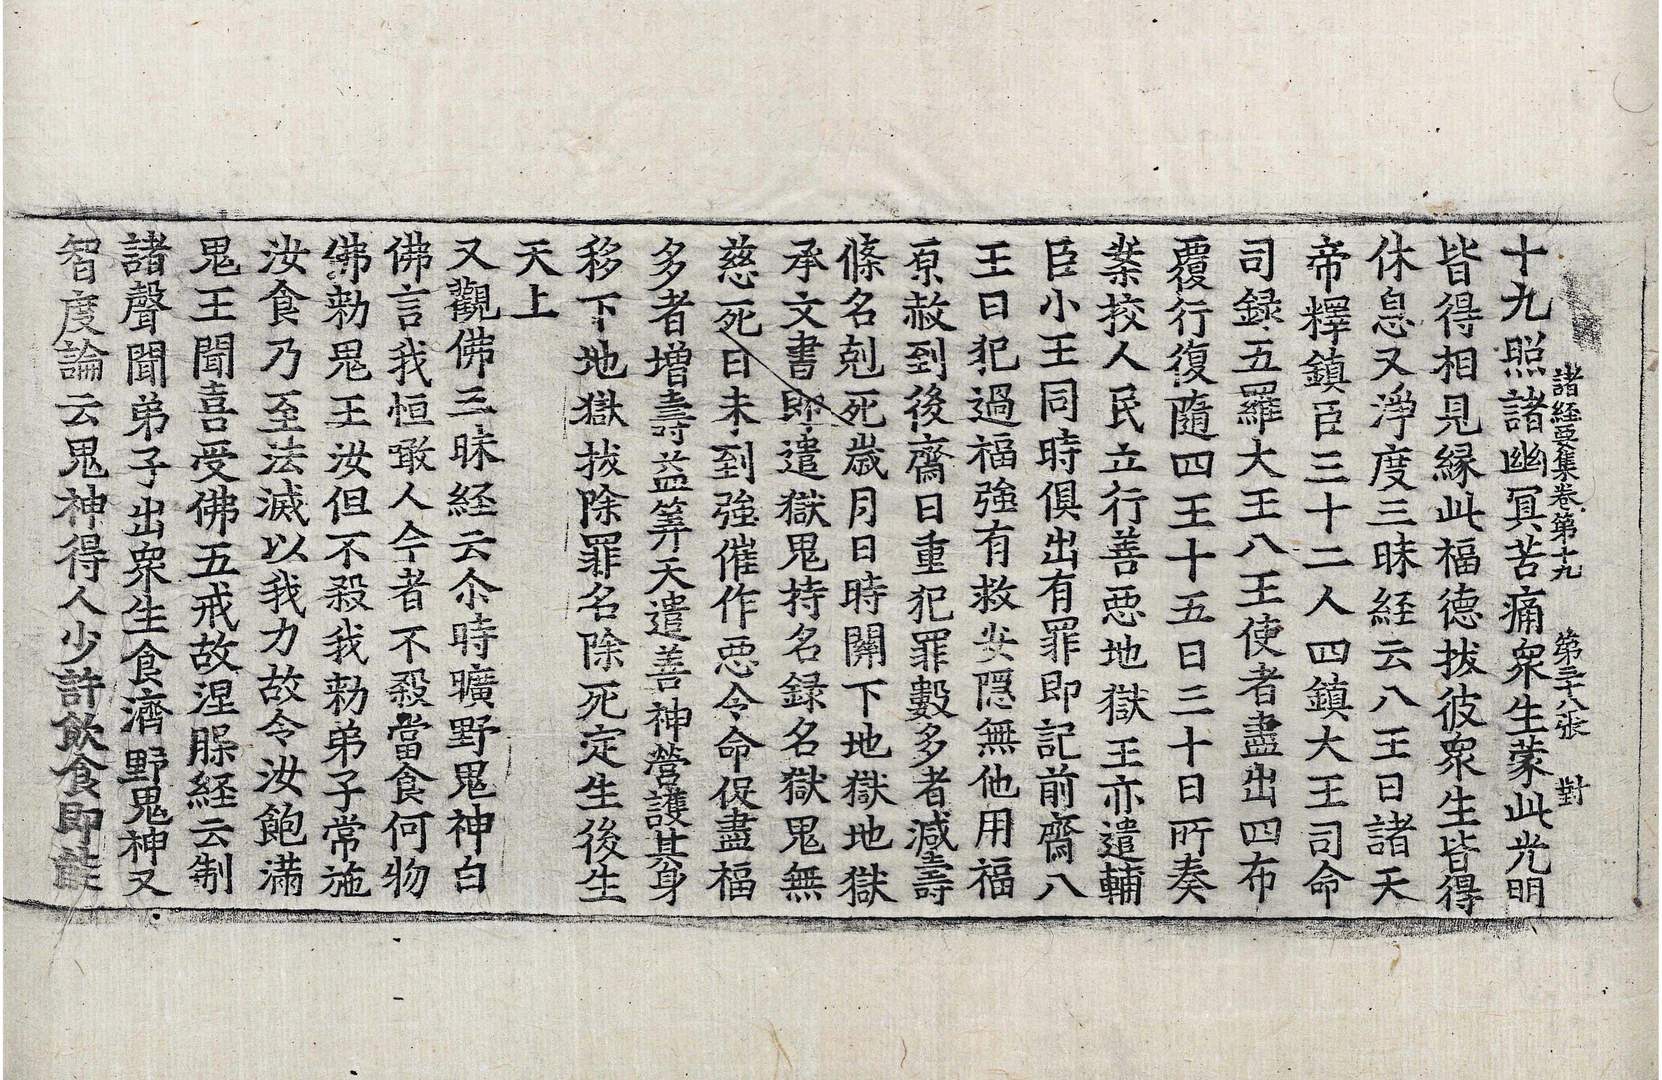 諸経要集卷第十九 第三十八張 對
十九照諸幽冥苦痛衆生蒙此光明
皆得相見縁此福德拔彼衆生皆得
休息又淨度三昧経云八王日諸天
帝釋鎮臣三十二人四鎮大王司命
司録五羅大王八王使者盡出四布
覆行復隨四王十五日三十日所奏
案挍人民立行善惡地獄王亦遣輔
臣小王同時俱出有罪即記前齋八
王日犯過福強有救安隱無他用福
原赦到後齋日重犯罪數多者減壽
條名剋死歲月日時關下地獄地獄
承文書即遣獄鬼持名録名獄鬼無
慈死日未到強催作惡令命促盡福
多者增壽益筭天遣善神營護其身
移下地獄拔除罪名除死定生後生
天上
又觀佛三昧経云尒時曠野鬼神白
佛言我恒噉人今者不殺當食何物
佛勑鬼王汝但不殺我勑弟子常施
汝食乃至法滅以我力故令汝飽滿
鬼王聞喜受佛五戒故涅槃経云制
諸聲聞弟子出衆生食濟野鬼神又
智度論云鬼神得人少許飲食即能